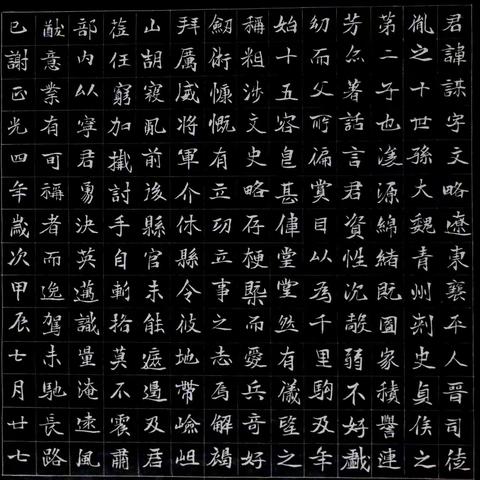 君諱謀字文略遼東襄平人晉司徒
胤之十世孫大魏青州刾史貞侯之
第二子也浚源綿緒既圖家積譽連
芳尒著話言君資性沉毅弱不好戲
幼而父所偏賞目以為千里駒及年
始十五容皃甚偉堂堂然有儀望之
稱粗涉文史略存梗槩而愛兵奇好
劒術慷慨有立功立事之志焉解褐
拜厲威將軍介休縣令彼地帶嶮岨
山胡寇亂前後縣官未能遮遏及君
莅任窮加撾討手自斬捨莫不震肅
部內以寧君勇決英邁識量淹遠風
猷意業有可稱者而逸駕未馳長路
已謝正光四年歲次甲辰七月廿七